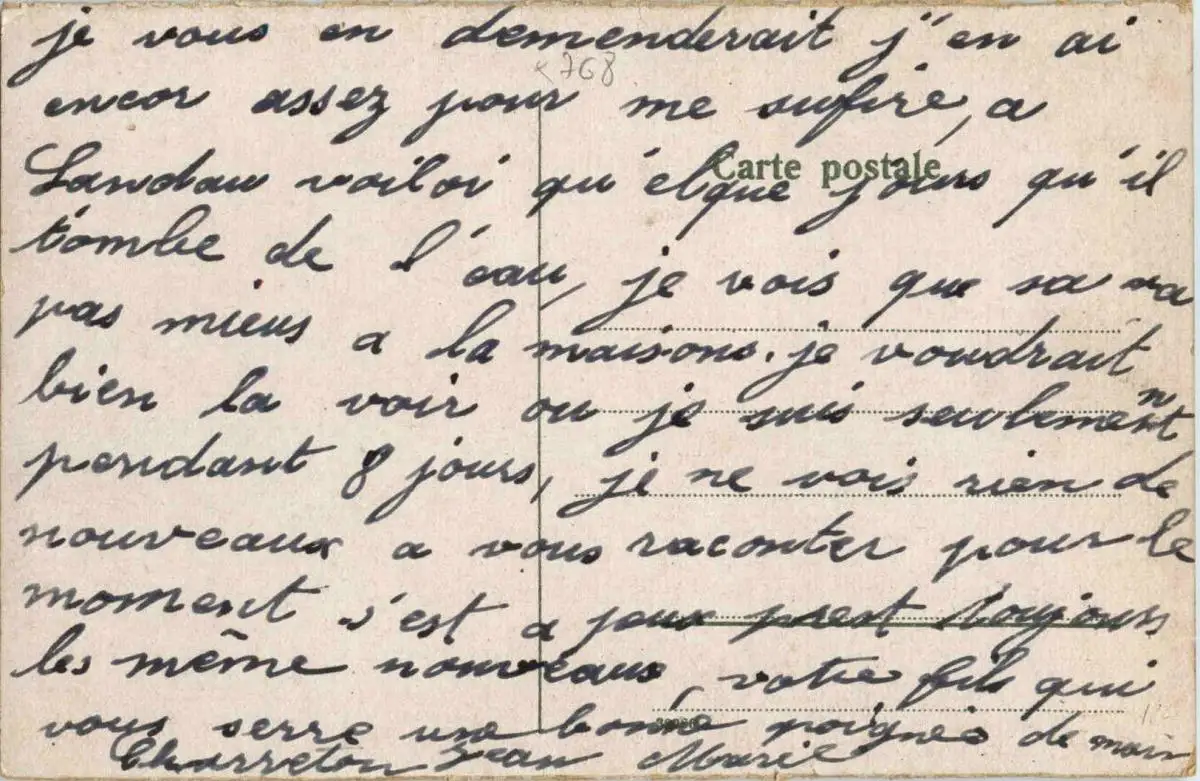 je vous en demenderait j'en ai
768
encor assez pour me sufire, a
Carte postale
Landau voiloi qu'elque jours qu'il
tombe de l'eau, je vois que sa va
pas mieus a la maisons. je voudrait
bien la voir ou je suis seulement
pendant 8 jours, je ne vois rien de
nouveaux a vous raconter pour le
moment s'est a peux prest toujours
les même nouveaux, votre fils qui
vous serre une bonne poignée de main
Charreton Jean Marie